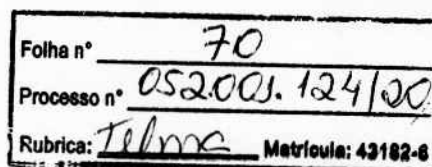 Folha nº 70
Processo nº 052.001.124/20
Rubrica: Telma Matrícula: 43182-6